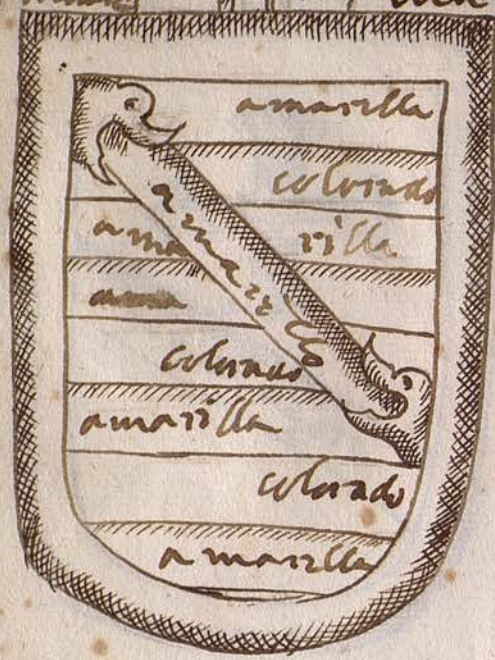 amarilla
colorado
ama rilla
amarillo
colorado
amarilla
colorado
amarilla